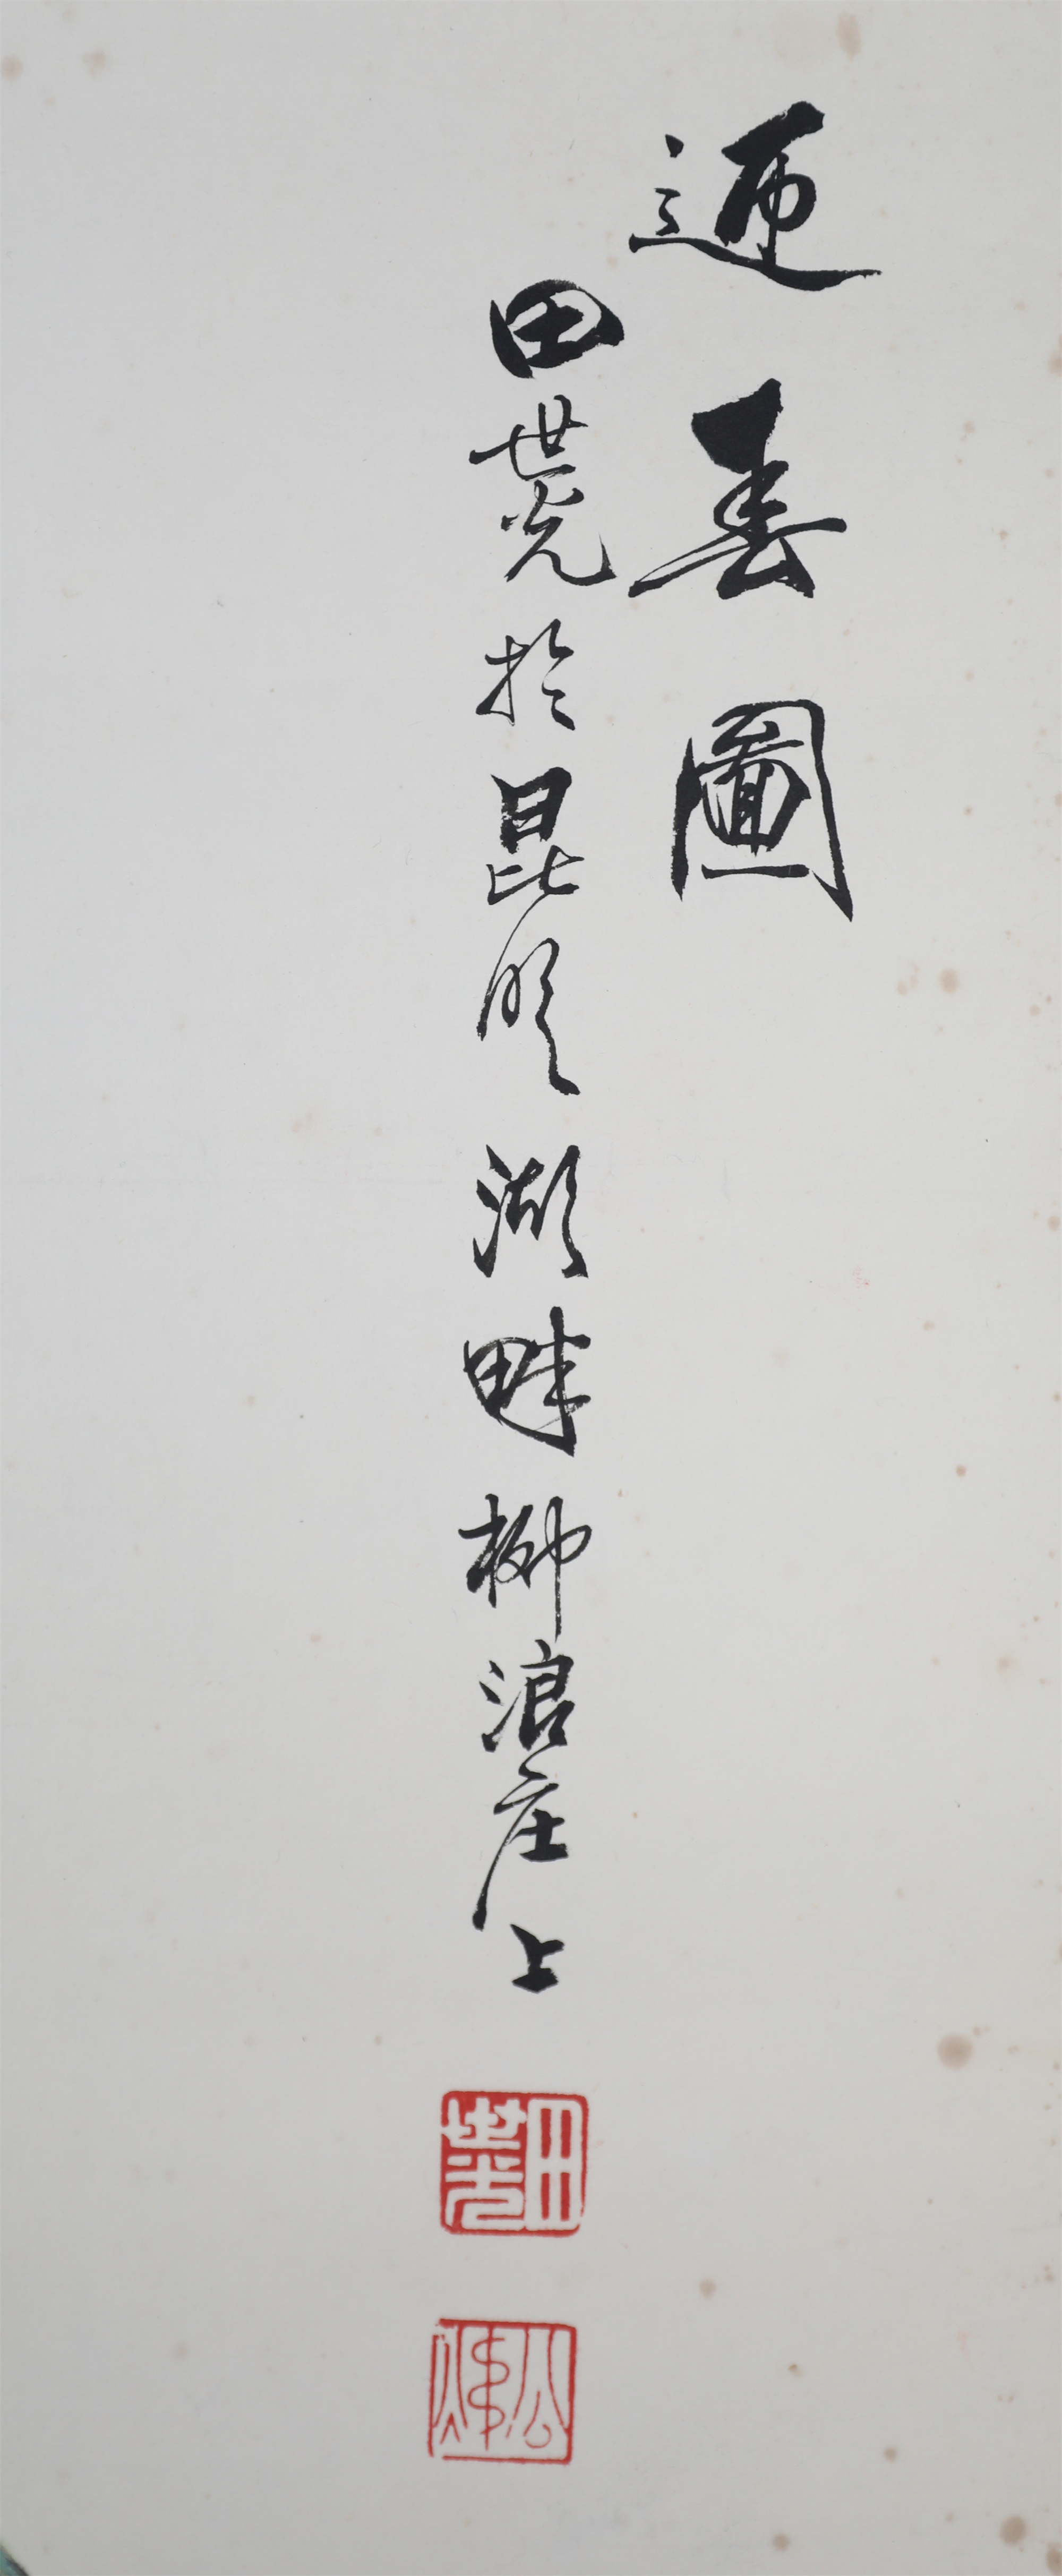 迎春圖
田世光於昆明湖畔柳浪庄上
田世光
公煒